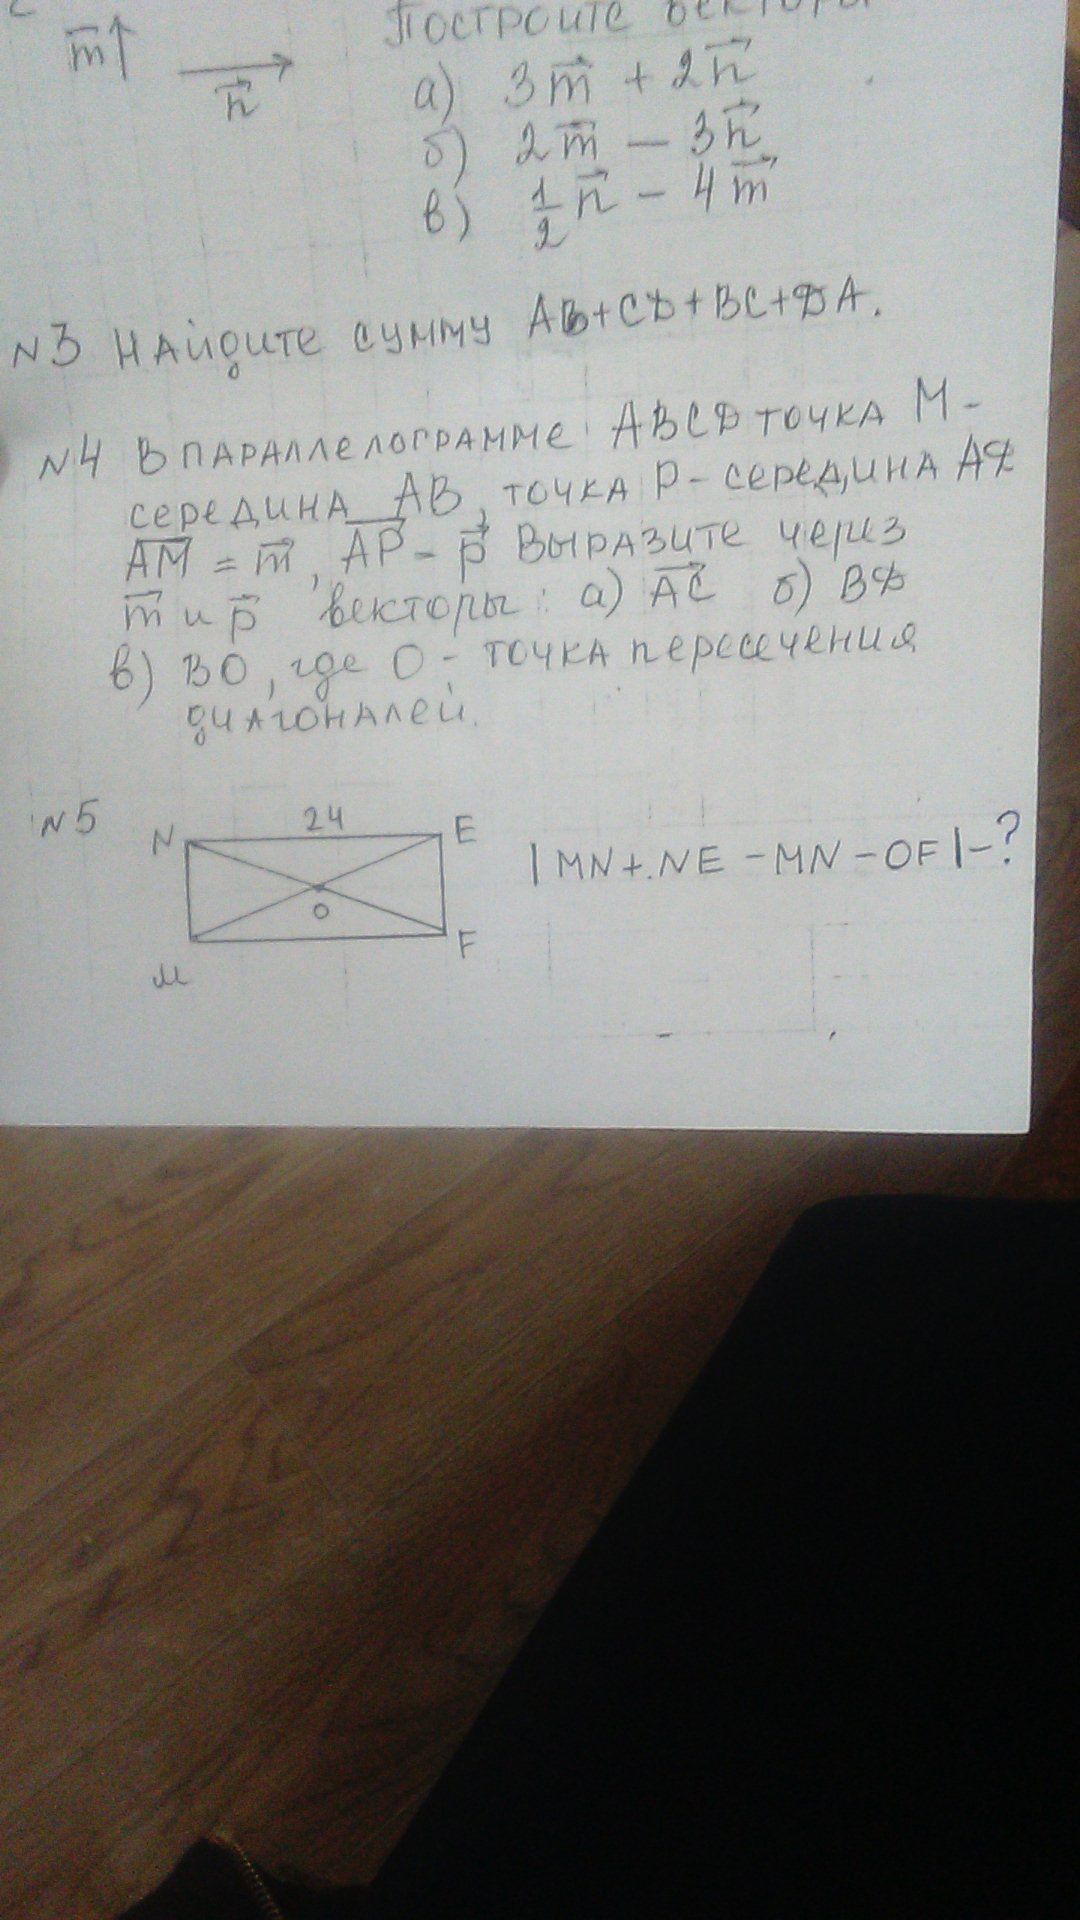 m
n
Постройте векторы
а) 3m + 2n
б) 2m - 3n
в) 1/2 n - 4m
N3 Найдите сумму AB+CD+BC+DA.
N4 В параллелограмме ABCD точка M-
середина AB, точка P- середина AD
AM = m, AP - p Выразите через
m и p векторы: а) AC б) BD
в) BO, где O - точка пересечения
диагоналей.
N5
N 24 E
|MN+NE-MN-OF|-?
O
M F